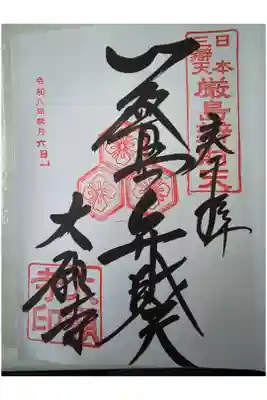 奉拝
日本
三辯天
厳島辯財天
厳島弁財天
大願寺
大願
寺印
令和八年弐月六日